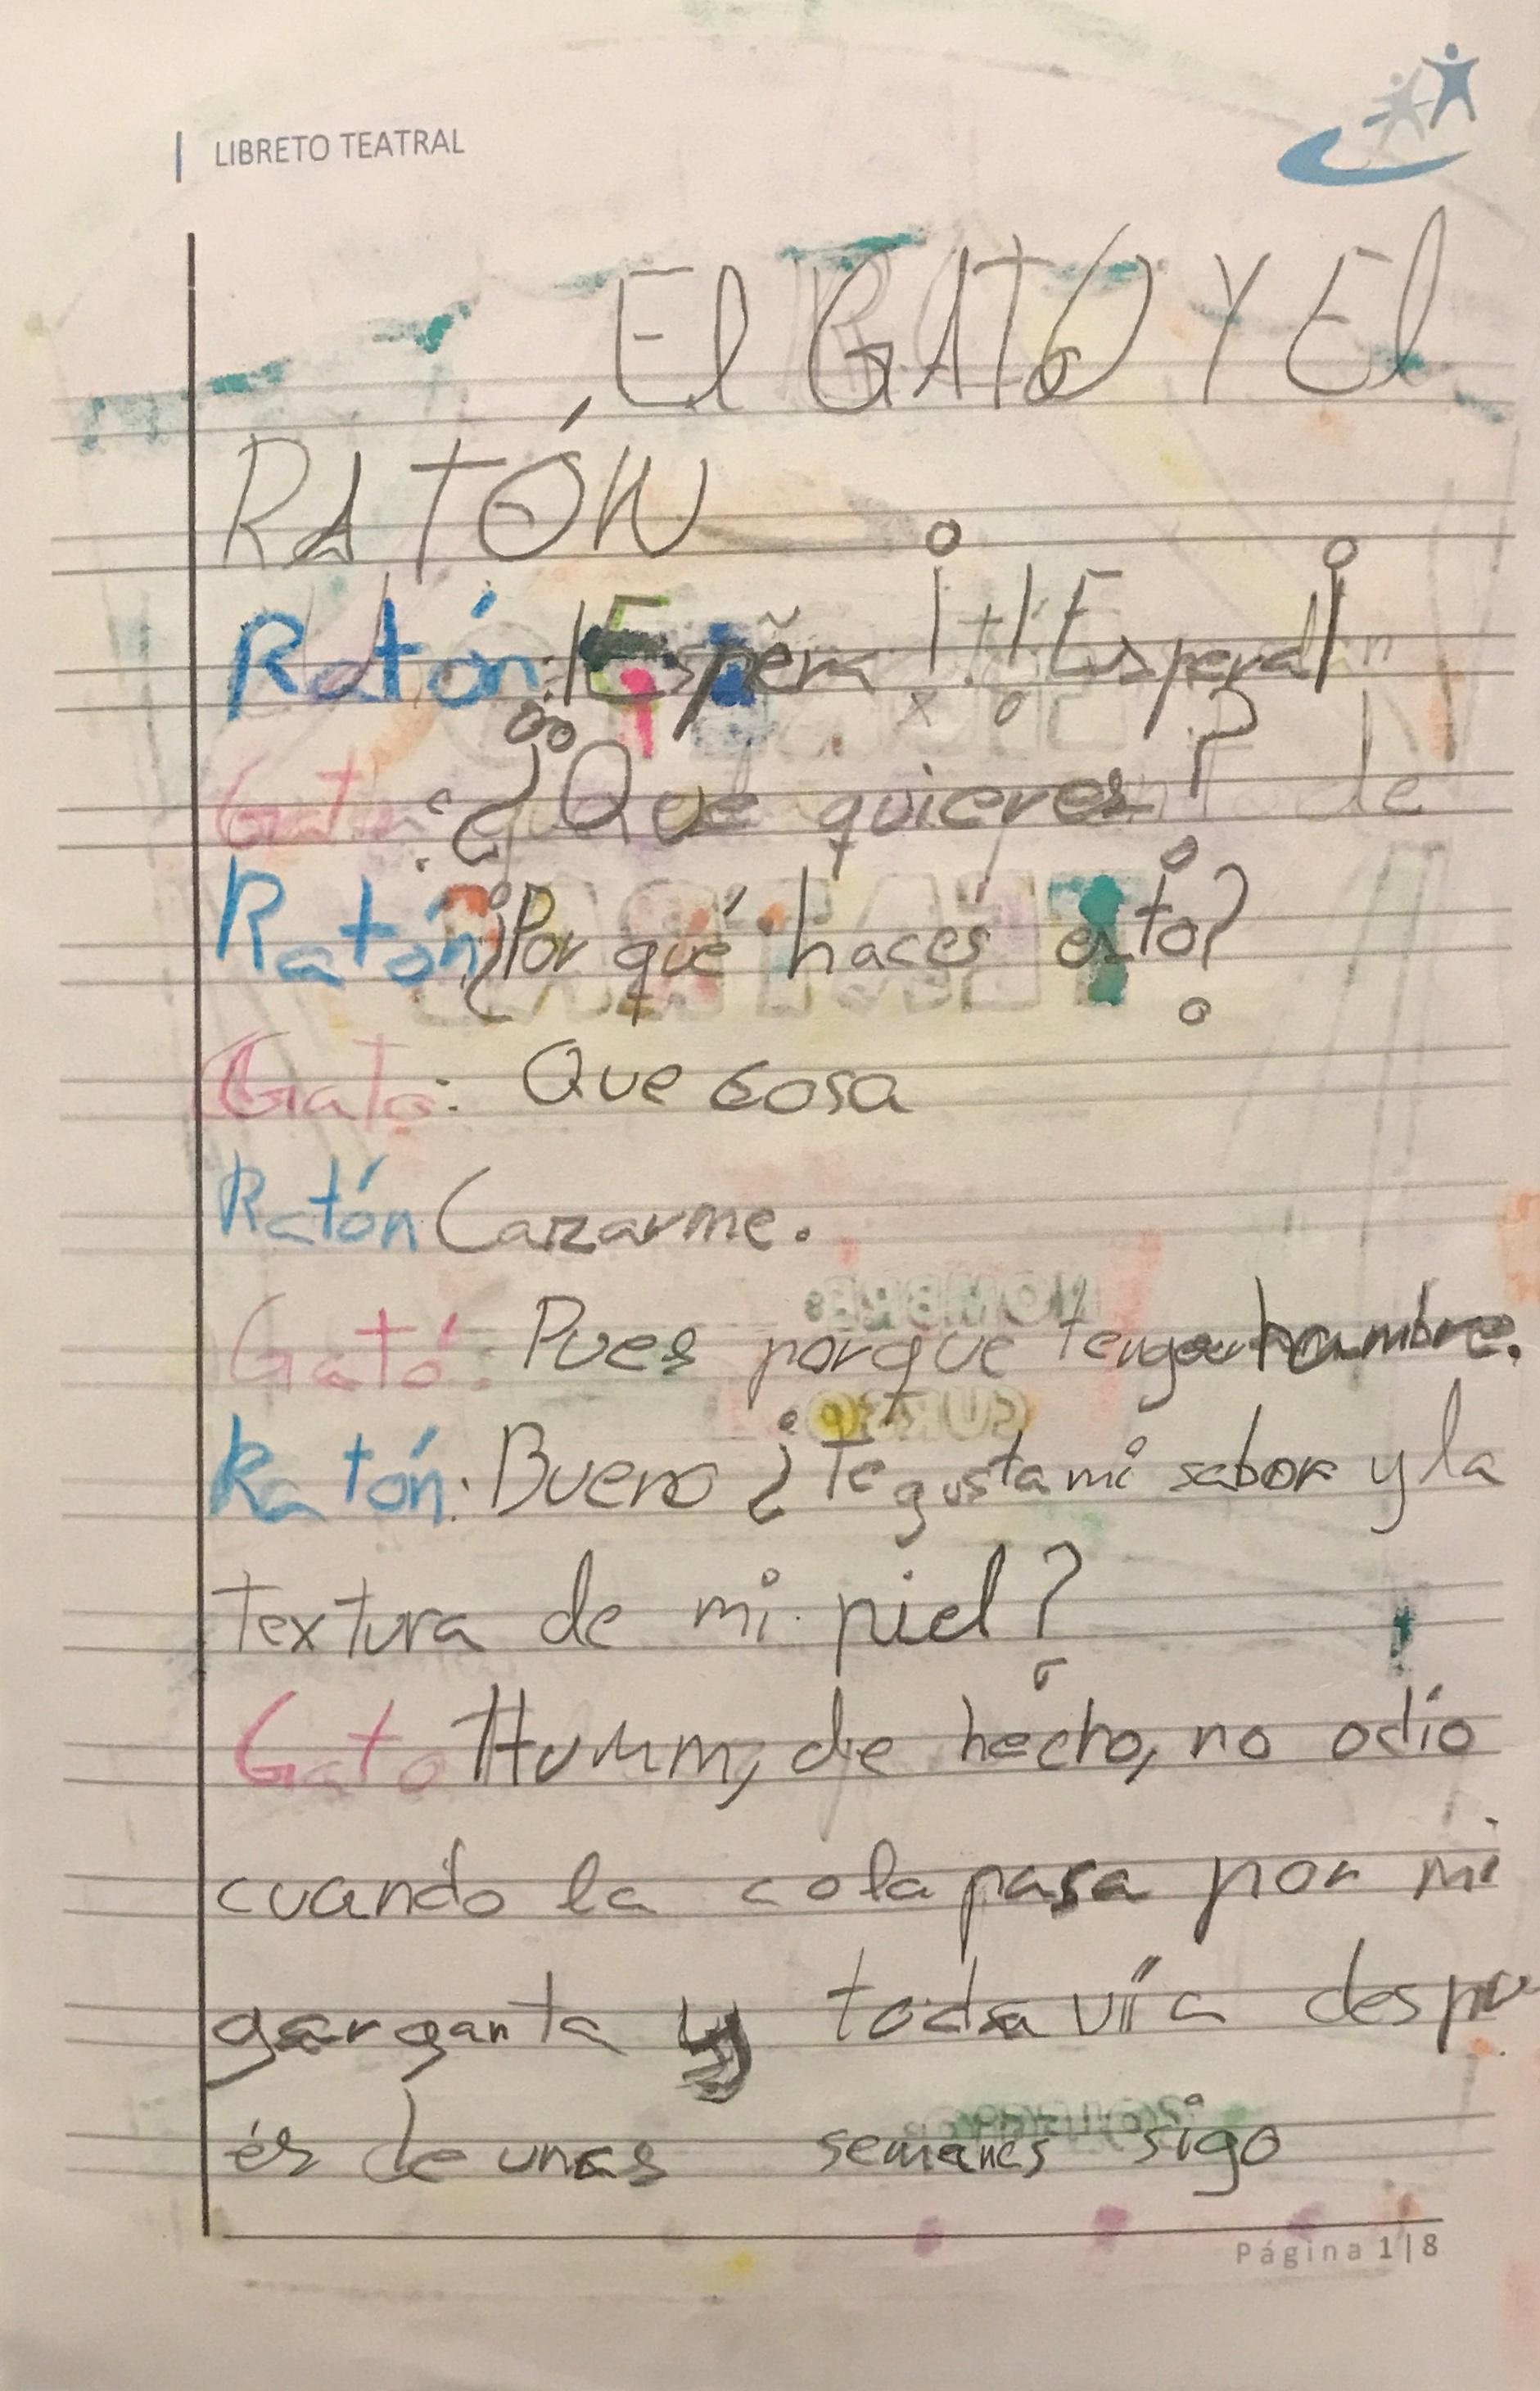 LIBRETO TEATRAL
El GATO Y El
RATÓN
Ratón: ¡Espera! ¡Espera!
Gato: ¿Que quieres?
Ratón ¿Por qué haces esto?
Gato: Que cosa
Ratón Cazarme.
Gato: Pues porque tengo hambre.
Ratón: Bueno ¿Te gusta mi sabor y la
textura de mi piel?
Gato Humm, de hecho, no odio
cuando la cola pasa por mi
garganta y todavía despu
és de unas semanas sigo
Página 1|8